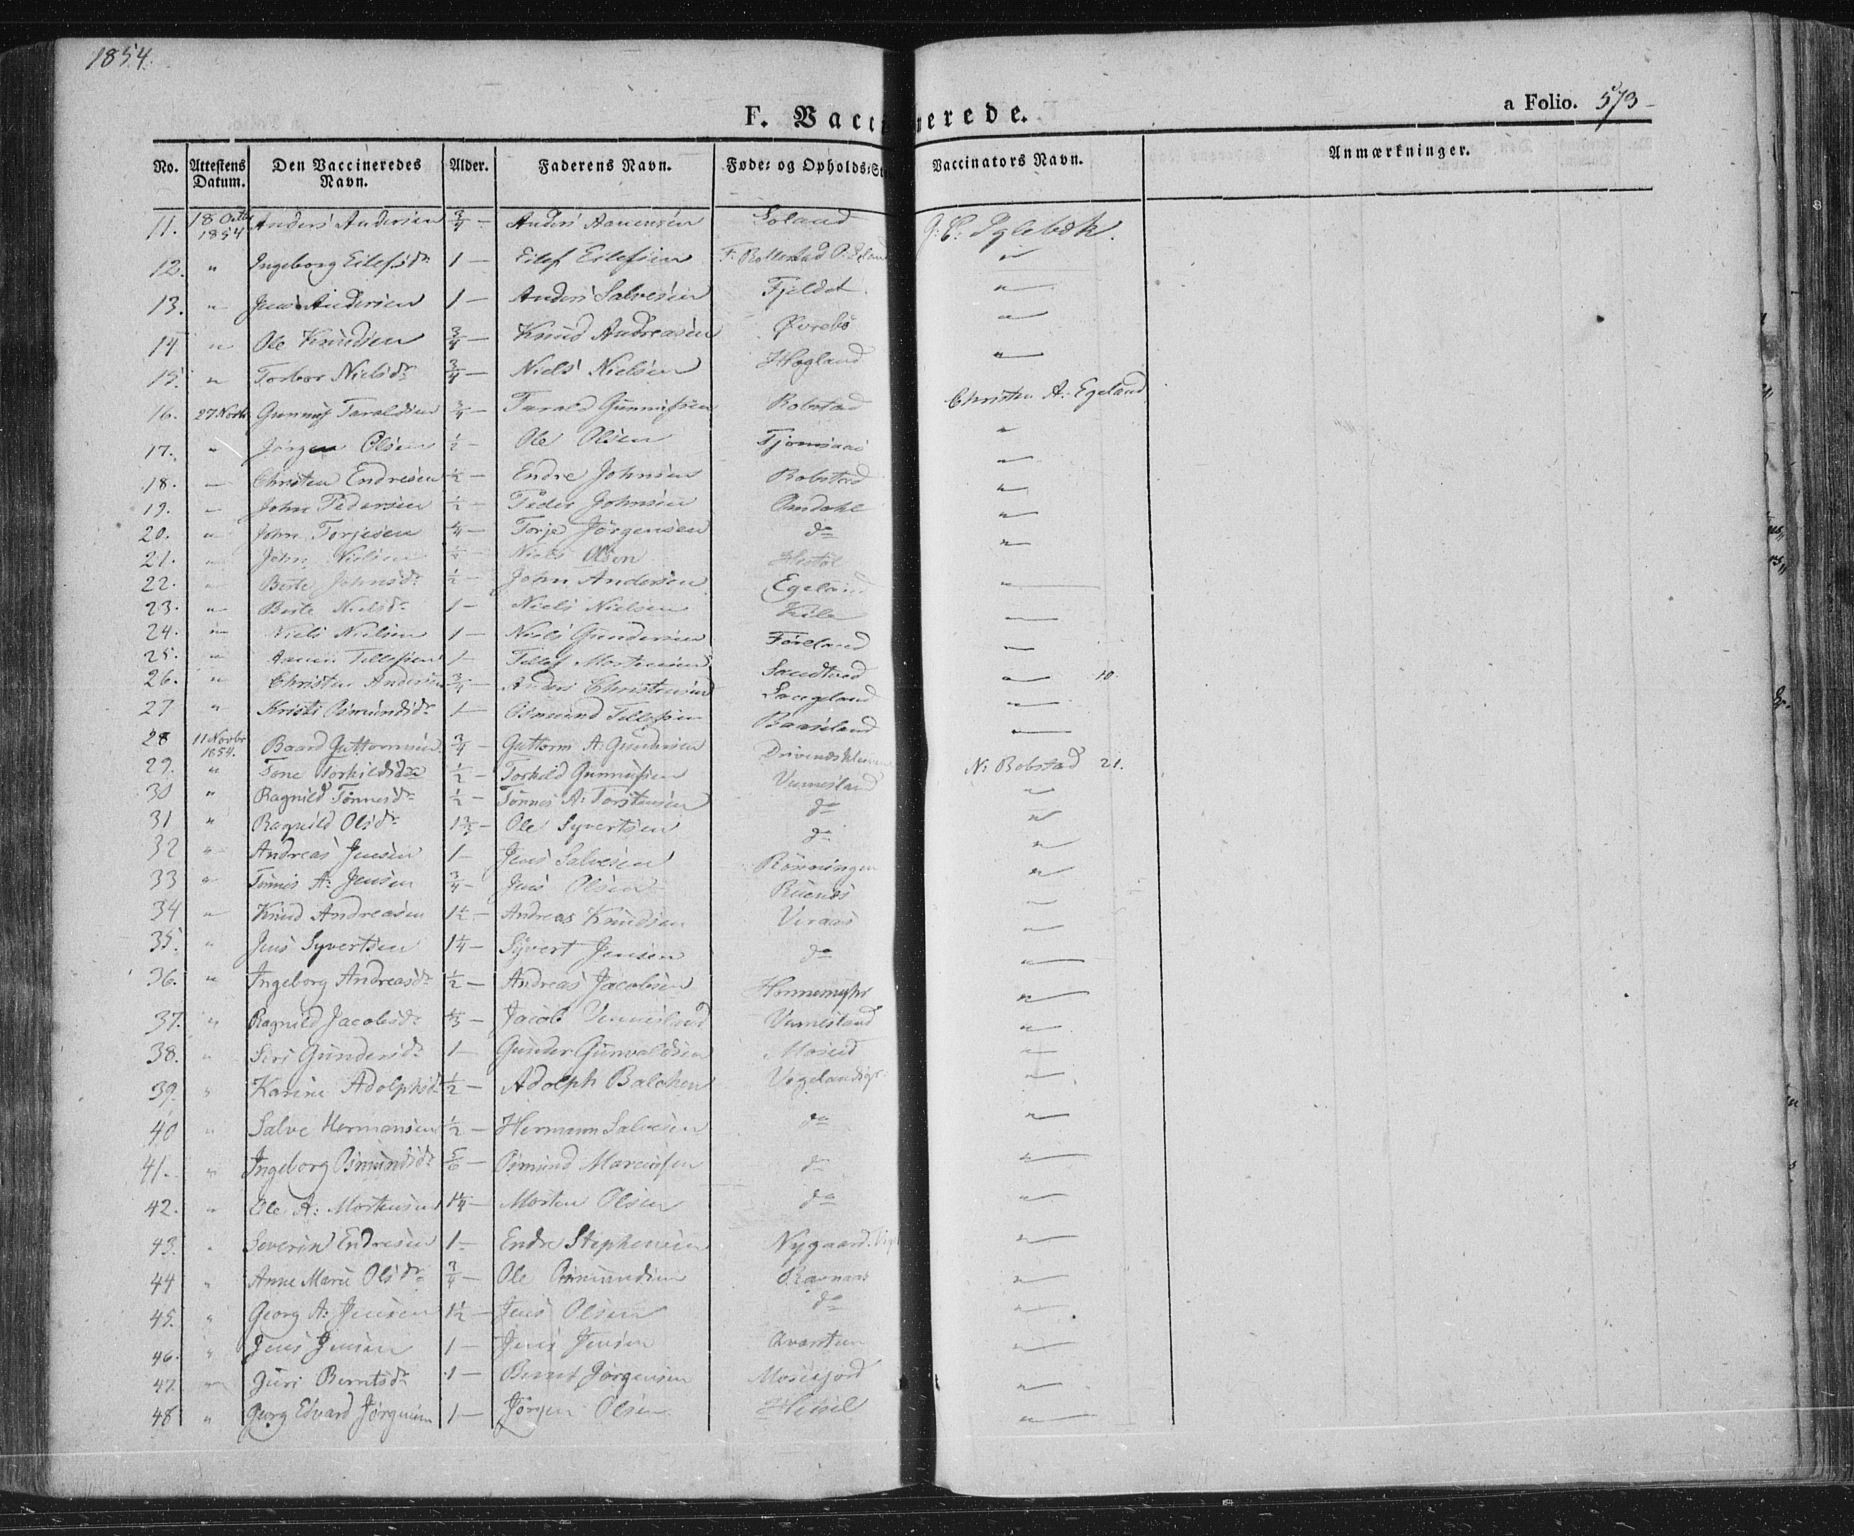 1854.
F. Vaccinerede. a Folio. 573
No. Attestens Datum. Den Vaccineredes Navn. Alder. Faderens Navn. Føde- og Opholds-St Vaccinators Navn. Anmærkninger.
11. 18 Octbr 1854 Anders Andersen 3/4 — Anders Aanensen Soland J. C. Iglebæk.
12. " Ingeborg Eilefsdr 1 — Eilef Eilefsen F. Rollestad O. "
13. " Jens Andersen 1 — Anders Salvesen Fjeldet "
14 " Ole Knudsen 3/4 — Knud Andreasen Øvrebø "
15. " Torbor Nielsdr 3/4 — Niels Nielsen Hægland "
16. 27 Novbr Gunnuf Taraldsen 3/4 — Tarald Gunnufsen Robstad Christen A. Egeland
17. " Jørgen Olsen 1/2 — Ole Olsen "
18. " Christen Endresen 1/2 — Endre Johnsen Robstad "
19. " John Pedersen 1/2 — Peder Johnsen Omdahl "
20. " John Torjesen — Torje Jørgensen do "
21. " John Nielsen — Niels Olsen "
22. " Berte Johnsdr 1/2 — John Andersen Egeland "
23. " Berte Nielsdr 1 — Niels Nielsen Kile "
24. " Niels Nielsen 1 — Niels Gundersen "
25. " Tellefsen 1 — Tellef Mortensen "
26. " Christen Andersen 3/4 — Anders Christensen " 10.
27 " Kristi Osmundsdr 1 — Osmund Tellefsen Langeland "
28 11 Novbr 1854. Baard Guttormsen 3/4 — Guttorm A. Gundersen "
29. " Tone Torkildsdr 1/2 — Torkild Gunnufsen Drivendskleiven N. Robstad 21.
30 " Ragnild Tønnesdr 1/2 — Tønnes A. Torstensen Vennesland "
31 " Ragnild Olsdr — Ole Syvertsen do "
32 " Andreas Jensen 1 — Jens Salvesen do "
33 " Tønnes A. Jensen 3/4 — Jens Olsen Rønningen "
34 " Knud Andreasen 1 1/2 — Andreas Knudsen "
35. " Jens Syvertsen 1 1/4 — Syvert Jensen do "
36. " Ingeborg Andreasdr 1/2 — Andreas Jacobsen Honnemyhr "
37. " Ragnild Jacobsdr — Jacob Vennesland Vennesland "
38. " Siri Gundersdr 1 — Gunder Gunvaldsen Moseid "
39. " Karine Adolphsdr 1/2 — Adolph Balchen "
40 " Salve Hermansen 1/2 — Hermann Salvesen do "
41. " Ingeborg Osmundsdr 5/6 — Osmund Marcussen do "
42. " Ole A. Mortensen 1 1/4 — Morten Olsen do "
43. " Severin Endresen 1 — Endre Stephensen Nygaard "
44 " Anne Marie Olsdr 3/4 — Ole Osmundsen Ravnaas "
45. " Georg A. Jensen 1 1/2 — Jens Olsen do "
46. " Jens Jensen 1 — Jens Jensen Qvarsten "
47 " Guri Berntsdr 1 — Bernt Jørgensen Moseijord "
48 " Georg Edvard Jørgensen 1 — Jørgen Olsen "